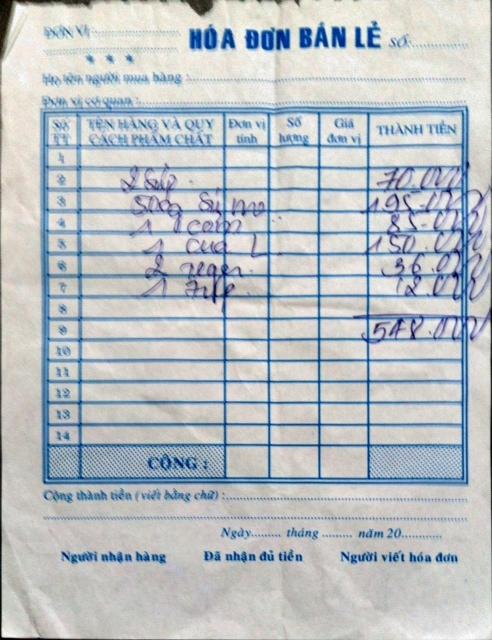 ĐƠN VỊ: HÓA ĐƠN BÁN LẺ SỐ:
* * *
Họ tên người mua hàng :
Đơn vị cơ quan :
Số TT TÊN HÀNG VÀ QUY CÁCH PHẨM CHẤT Đơn vị tính Số lượng Giá đơn vị THÀNH TIỀN
1
2 2 Súp 70.000
3 500g Sú 195.000
4 1 cơm 85.000
5 1 cua L 150.000
6 2 36.000
7 1 12.000
8
9 548.000
10
11
12
13
14
CỘNG :
Cộng thành tiền (viết bằng chữ) :
Ngày......... tháng ......... năm 20............
Người nhận hàng Đã nhận đủ tiền Người viết hóa đơn